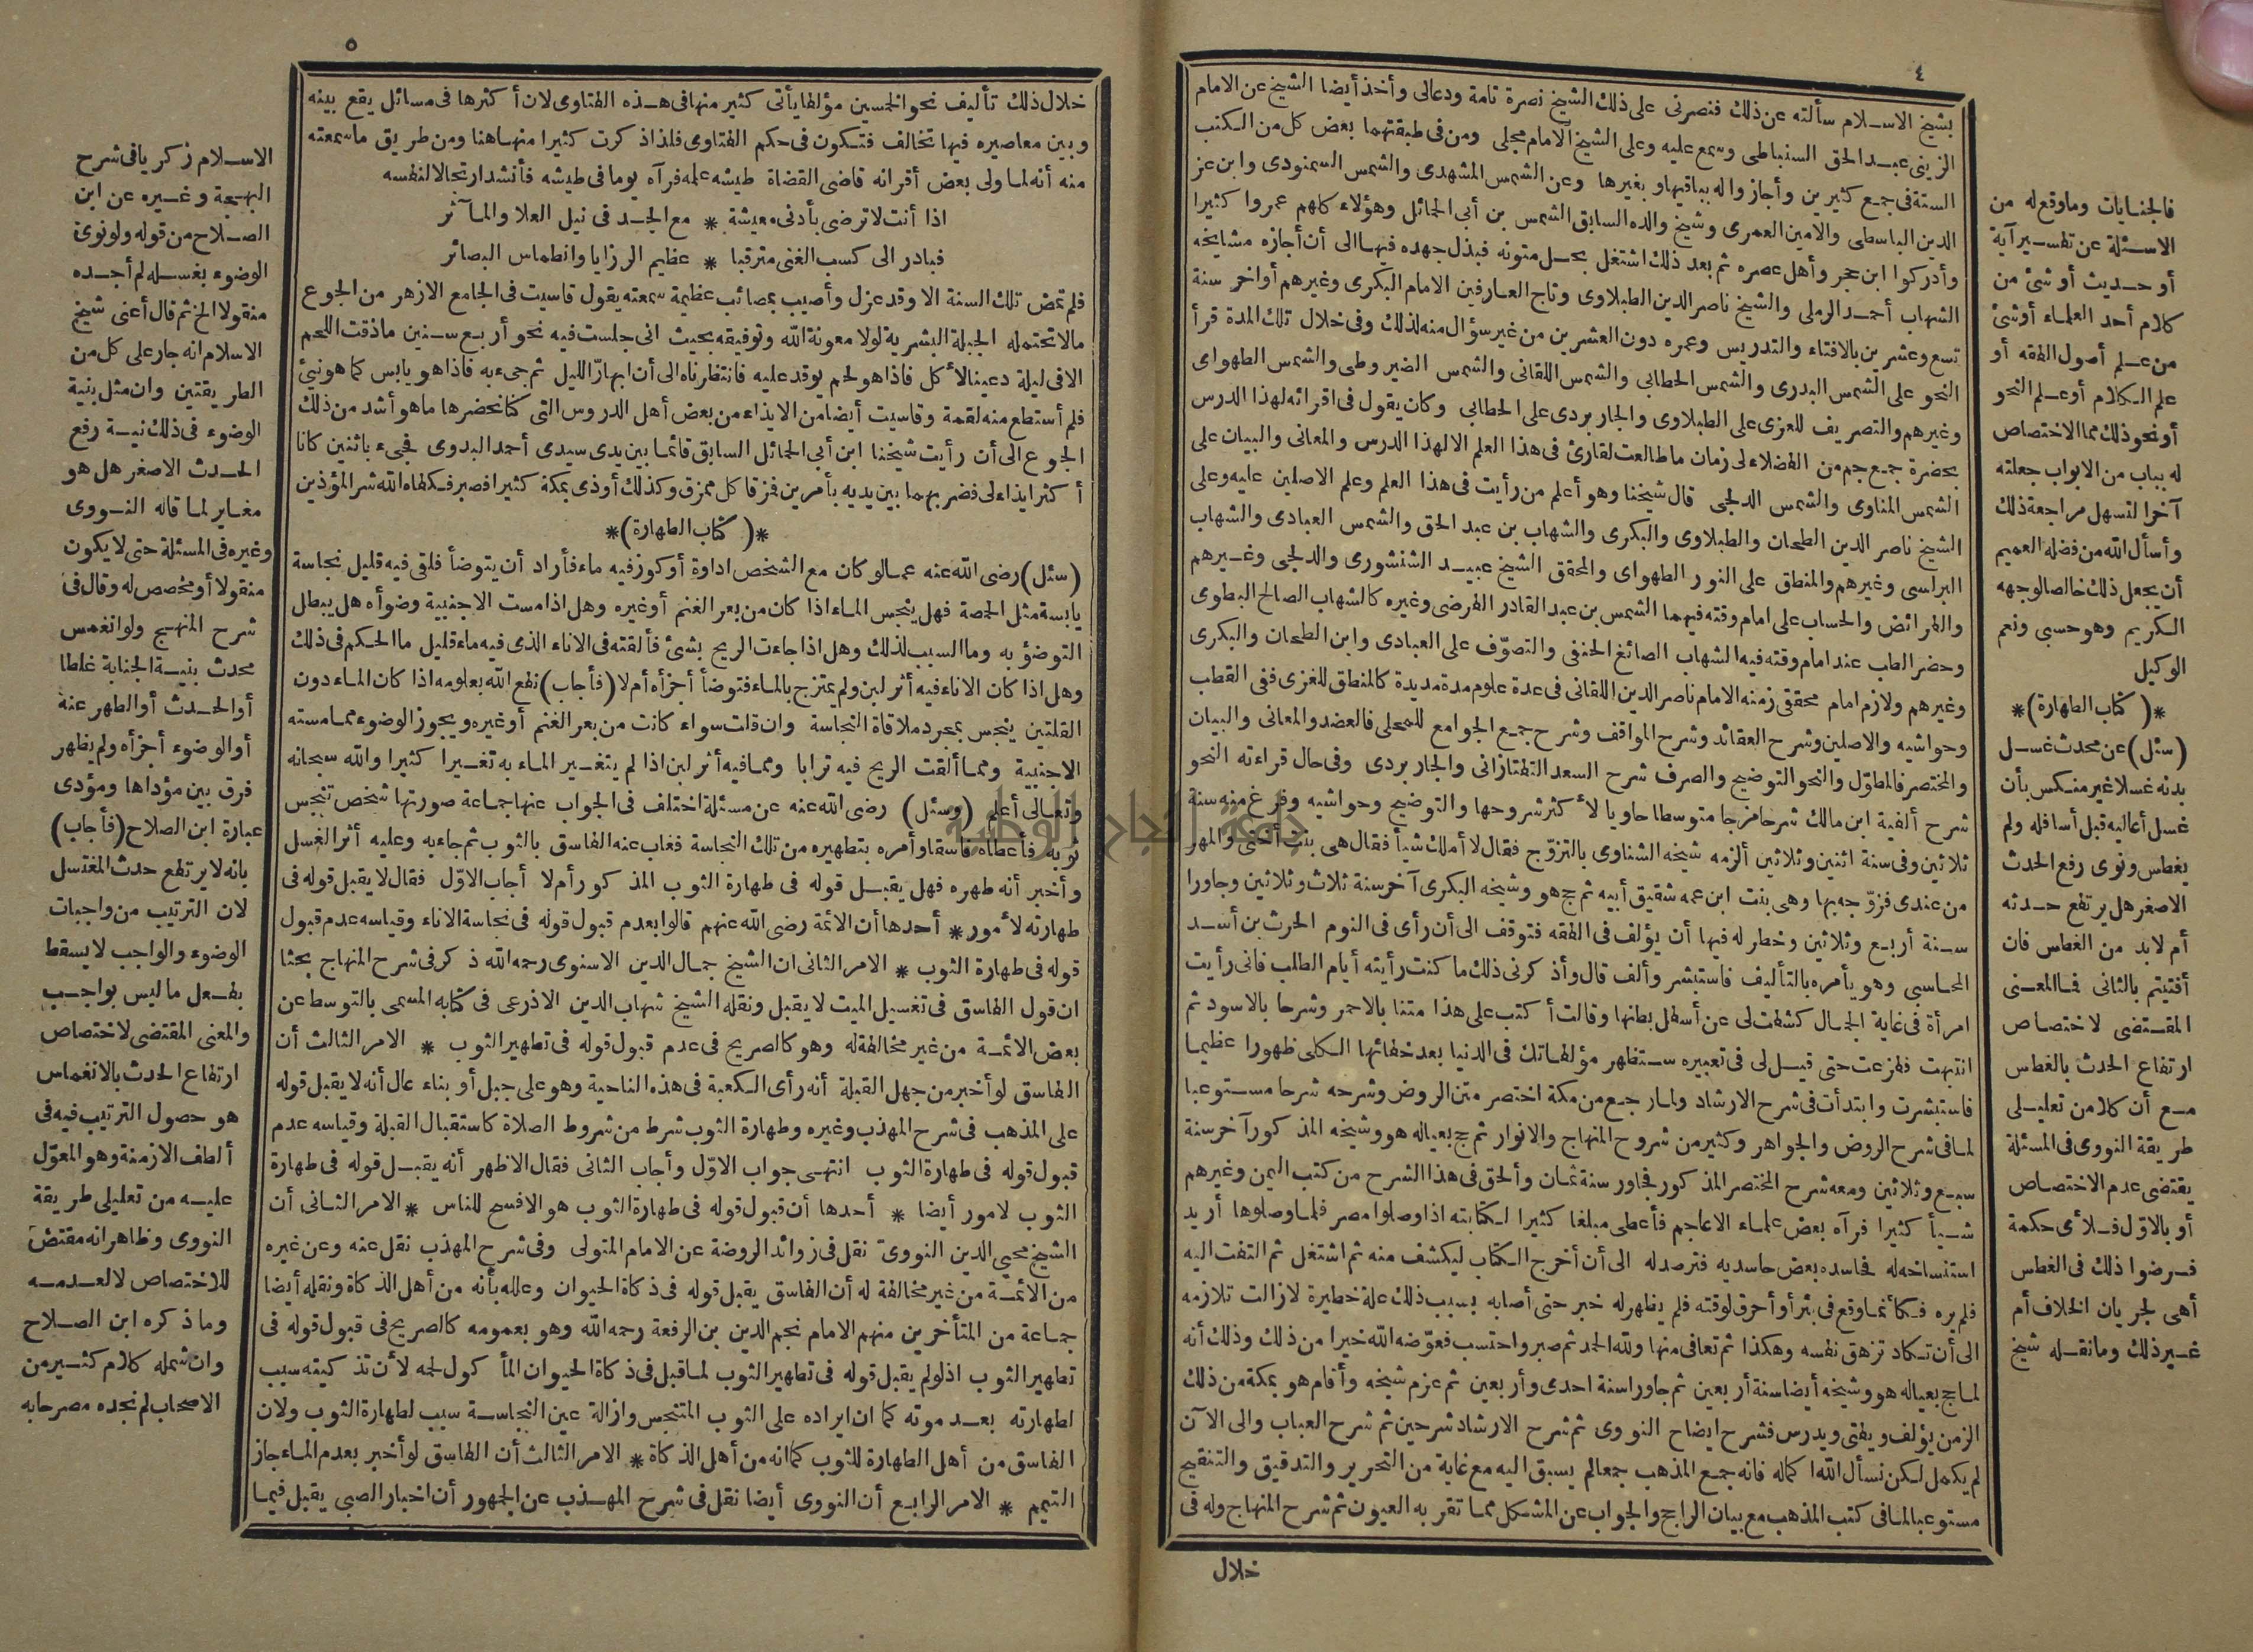 ٤
بشيخ الاسلام سألته عن ذلك فنصرنى على ذلك الشيخ نصرة تامة ودعالى وأخذ أيضا الشيخ عن الامام
الزينى عبد الحق السنباطى وسمع عليه وعلى الشيخ الامام مجلى ومن فى طبقتهما بعض كل من الكتب
الستة فى جمع كثيرين وأجازوا له بباقيها وبغيرها وعن الشمس المشهدى والشمس السمنودى وابن عز
الدين الباسطى والامين العمرى وشيخ والده السابق الشمس بن أبى الحمائل وهؤلاء كلهم عمروا كثيرا
وأدركوا ابن حجر وأهل عصره ثم بعد ذلك اشتغل بحل متونه فبذل جهده فيها الى أن أجازه مشايخه
الشهاب أحمد الرملى والشيخ ناصر الدين الطبلاوى وتاج العارفين الامام البكرى وغيرهم أواخر سنة
تسع وعشرين بالافتاء والتدريس وعمره دون العشرين من غير سؤال منه لذلك وفى خلال تلك المدة قرأ
النحو على الشمس البدرى والشمس الحطابى والشمس اللقانى والشمس الضيروطى والشمس الطهواى
وغيرهم والتصريف للعزى على الطبلاوى والجاربردى على الحطابى وكان يقول فى اقرائه لهذا الدرس
بحضرة جمع جم من الفضلاء لى زمان ما طالعت لقارئ فى هذا العلم الا لهذا الدرس والمعانى والبيان على
الشمس المناوى والشمس الدلجى قال شيخنا وهو أعلم من رأيت فى هذا العلم وعلم الاصلين عليه وعلى
الشيخ ناصر الدين الطحان والطبلاوى والبكرى والشهاب بن عبد الحق والشمس العبادى والشهاب
البرلسى وغيرهم والمنطق على النور الطهواى والمحقق الشيخ عبيد الشنشورى والدلجى وغيرهم
والفرائض والحساب على امام وقته فيهما الشمس بن عبد القادر الفرضى وغيره كالشهاب الصالح البطوى
وحضر الطب عند امام وقته فيه الشهاب الصائغ الحنفى والتصوّف على العبادى وابن الطحان والبكرى
وغيرهم ولازم امام محققى زمنه الامام ناصر الدين اللقانى فى عدة علوم مدة مديدة كالمنطق للغزى ففى القطب
وحواشيه والاصلين وشرح العقائد وشرح المواقف وشرح جمع الجوامع للمحلى فالعضد والمعانى والبيان
والمختصر فالمطوّل والنحو التوضيح والصرف شرح السعد التفتازانى والجاربردى وفى حال قراءته النحو
شرح ألفية ابن مالك شرحا مزجا متوسطا حاويا لأكثر شروحها والتوضيح وحواشيه وفرغ منه سنة
ثلاثين وفى سنة اثنين وثلاثين ألزمه شيخه الشناوى بالتزوّج فقال لا أملك شيأ فقال هى بنت أختى والمهر
من عندى فزوّجه بها وهى بنت ابن عمه شقيق أبيه ثم حج هو وشيخه البكرى آخر سنة ثلاث وثلاثين وجاورا
سنة أربع وثلاثين وخطر له فيها أن يؤلف فى الفقه فتوقف الى أن رأى فى النوم الحرث بن أسد
المحاسبى وهو يأمره بالتأليف فاستبشر وألف قال وأذكرنى ذلك ما كنت رأيته أيام الطلب فانى رأيت
امرأة فى غاية الجمال كشفت لى عن أسفل بطنها وقالت أكتب على هذا متنا بالاحمر وشرحا بالاسود ثم
انتبهت ففزعت حتى قيل لى فى تعبيره ستظهر مؤلفاتك فى الدنيا بعد خفائها الكلى ظهورا عظيما
فاستبشرت وابتدأت فى شرح الارشاد ولما رجع من مكة اختصر متن الروض وشرحه شرحا مستوعبا
لما فى شرح الروض والجواهر وكثير من شروح المنهاج والانوار ثم حج بعياله هو وشيخه المذكور آخر سنة
سبع وثلاثين ومعه شرح المختصر المذكور فجاور سنة ثمان وألحق فى هذا الشرح من كتب اليمن وغيرهم
شيأ كثيرا فرآه بعض علماء الاعاجم فأعطى مبلغا كثيرا لكتابته اذا وصلوا مصر فلما وصلوها أريد
استنساخه له فحاسده بعض حاسديه فترصد له الى أن أخرج الكتاب ليكشف منه ثم اشتغل ثم التفت اليه
فلم يره فكأنما وقع فى بئر أو أحرق لوقته فلم يظهر له خبر حتى أصابه بسبب ذلك علة خطيرة لازالت تلازمه
الى أن تكاد تزهق نفسه وهكذا ثم تعافى منها ولله الحمد ثم صبر واحتسب فعوّضه الله خبرا من ذلك وذلك أنه
لما حج بعياله هو وشيخه أيضا سنة أربعين ثم جاورا سنة احدى وأربعين ثم عزم شيخه وأقام هو بمكة من ذلك
الزمن يؤلف ويفتى ويدرس فشرح ايضاح النووى ثم شرح الارشاد شرحين ثم شرح العباب والى الآن
لم يكمل لكن نسأل الله اكماله فانه جمع المذهب جمعا لم يسبق اليه مع غاية من التحرير والتدقيق والتنقيح
مستوعبا لما فى كتب المذهب مع بيان الراجح والجواب عن المشكل مما تقر به العيون ثم شرح المنهاج وله فى
خلال
فالجنايات وما وقع له من
الاسئلة عن تفسير آية
أو حديث أو شئ من
كلام أحد العلماء أو شئ
من علم أصول الفقه أو
علم الكلام أو علم النحو
أو نحو ذلك مما لا اختصاص
له بباب من الابواب جعلته
آخرا لتسهل مراجعة ذلك
وأسأل الله من فضله العميم
أن يجعل ذلك خالصا لوجهه
الكريم وهو حسبى ونعم
الوكيل
*(كتاب الطهارة)*
(سئل) عن محدث غسل
بدنه غسلا غير منكس بأن
غسل أعاليه قبل أسافله ولم
يغطس ونوى رفع الحدث
الاصغر هل يرتفع حدثه
أم لا بد من الغطس فان
أفتيتم بالثانى فما المعنى
المقتضى لاختصاص
ارتفاع الحدث بالغطس
مع أن كلا من تعليلى
طريقة النووى فى المسئلة
يقتضى عدم الاختصاص
أو بالاوّل فلأى حكمة
فرضوا ذلك فى الغطس
أهى لجريان الخلاف أم
غير ذلك وما نقله شيخ
٥
خلال ذلك تأليف نحو الخمسين مؤلفا يأتى كثير منها فى هذه الفتاوى لان أكثرها فى مسائل يقع بينه
وبين معاصيره فيها تخالف فتكون فى حكم الفتاوى فلذا ذكرت كثيرا منها هنا ومن طريق ما سمعته
منه أنه لما ولى بعض أقرانه قاضى القضاة طيشه علمه فرآه يوما فى طيشه فأنشد ارتجالا لنفسه
اذا أنت لا ترضى بأدنى معيشة * مع الجد فى نيل العلا والمآثر
فبادر الى كسب الغنى مترقبا * عظيم الرزايا وانطماس البصائر
فلم تمض تلك السنة الا وقد عزل وأصيب بمصائب عظيمة سمعته يقول قاسيت فى الجامع الازهر من الجوع
مالا تحتمله الجبلة البشرية لولا معونة الله وتوفيقه بحيث انى جلست فيه نحو أربع سنين ماذقت اللحم
الا فى ليلة دعينا لأكل فاذا هو لحم يوقد عليه فانتظرناه الى أن ابهارّ الليل ثم جىء به فاذا هو يابس كما هونىئ
فلم أستطع منه لقمة وقاسيت أيضا من الايذاء من بعض أهل الدروس التى كنا نحضرها ما هو أشد من ذلك
الجوع الى أن رأيت شيخنا ابن أبى الحمائل السابق قائما بين يدى سيدى أحمد البدوى فجىء باثنين كانا
أكثر ايذاء لى فضربهما بين يديه بأمرين فمزقا كل ممزق وكذلك أوذى بمكة كثيرا فصبر فكفاه الله شر المؤذين
*(كتاب الطهارة)*
(سئل) رضى الله عنه عما لو كان مع الشخص اداوة أو كوز فيه ماء فأراد أن يتوضأ فلقى فيه قليل نجاسة
يابسة مثل الحمصة فهل ينجس الماء اذا كان من بعر الغنم أو غيره وهل اذا مست الاجنبية وضوأه هل يبطل
التوضؤ به وما السبب لذلك وهل اذا جاءت الريح بشئ فألقته فى الاناء الذى فيه ماء قليل ما الحكم فى ذلك
وهل اذا كان الاناء فيه أثر لبن ولم يمتزج بالماء فتوضأ أجزأه أم لا (فأجاب) نفع الله بعلومه اذا كان الماء دون
القلتين ينجس بمجرد ملاقاة النجاسة وان قلت سواء كانت من بعر الغنم أو غيره ويجوز الوضوء مما مسته
الاجنبية ومما ألقت الريح فيه ترابا ومما فيه أثر لبن اذا لم يتغير الماء به تغيرا كثيرا والله سبحانه
وتعالى أعلم (وسئل) رضى الله عنه عن مسئلة اختلف فى الجواب عنها جماعة صورتها شخص تنجس
ثوبه فأعطاه فاسقا وأمره بتطهيره من تلك النجاسة فغاب عنه الفاسق بالثوب ثم جاء به وعليه أثر الغسل
وأخبر أنه طهره فهل يقبل قوله فى طهارة الثوب المذكور أم لا أجاب الاوّل فقال لا يقبل قوله فى
طهارته لأمور * أحدها أن الائمة رضى الله عنهم قالوا بعدم قبول قوله فى نجاسة الاناء وقياسه عدم قبول
قوله فى طهارة الثوب * الامر الثانى ان الشيخ جمال الدين الاسنوى رحمه الله ذكر فى شرح المنهاج بحثا
ان قول الفاسق فى تغسيل الميت لا يقبل ونقله الشيخ شهاب الدين الاذرعى فى كتابه المسمى بالتوسط عن
بعض الائمة من غير مخالفة له وهو كالصريح فى عدم قبول قوله فى تطهير الثوب * الامر الثالث أن
الفاسق لو أخبر من جهل القبلة أنه رأى الكعبة فى هذه الناحية وهو على جبل أو بناء عال أنه لا يقبل قوله
على المذهب فى شرح المهذب وغيره وطهارة الثوب شرط من شروط الصلاة كاستقبال القبلة وقياسه عدم
قبول قوله فى طهارة الثوب انتهى جواب الاوّل وأجاب الثانى فقال الاظهر أنه يقبل قوله فى طهارة
الثوب لامور أيضا * أحدها أن قبول قوله فى طهارة الثوب هو الافسح للناس * الامر الثانى أن
الشيخ محيى الدين النووى نقل فى زوائد الروضة عن الامام المتولى وفى شرح المهذب نقل عنه وعن غيره
من الائمة من غير مخالفة له أن الفاسق يقبل قوله فى ذكاة الحيوان وعلله بأنه من أهل الذكاة ونقله أيضا
جماعة من المتأخرين منهم الامام نجم الدين بن الرفعة رحمه الله وهو بعمومه كالصريح فى قبول قوله فى
تطهير الثوب اذ لو لم يقبل قوله فى تطهير الثوب لما قبل فى ذكاة الحيوان المأكول لحمه لأن تذكيته سبب
لطهارته بعد موته كما ان ايراده على الثوب المتنجس وازالة عين النجاسة سبب لطهارة الثوب ولان
الفاسق من أهل الطهارة للثوب كما انه من أهل الذكاة * الامر الثالث أن الفاسق لو أخبر بعدم الماء جاز
التيمم * الامر الرابع أن النووى أيضا نقل فى شرح المهذب عن الجمهور أن اخبار الصبى يقبل فيما
الاسلام زكريا فى شرح
البهجة وغيره عن ابن
الصلاح من قوله ولو نوى
الوضوء بغسله لم أجده
منقولا الخ ثم قال أعنى شيخ
الاسلام انه جار على كل من
الطريقتين وان مثل بنية
الوضوء فى ذلك نية رفع
الحدث الاصغر هل هو
مغاير لما قاله النووى
وغيره فى المسئلة حتى لا يكون
منقولا أو مخصص له وقال فى
شرح المنهج ولو انغمس
محدث بنية الجنابة غلطا
أو الحدث أو الطهر عنه
أو الوضوء أجزأه ولم يظهر
فرق بين مؤداها ومؤدى
عبارة ابن الصلاح (فأجاب)
بانه لا يرتفع حدث المغتسل
لان الترتيب من واجبات
الوضوء والواجب لا يسقط
بفعل ما ليس بواجب
والمعنى المقتضى لاختصاص
ارتفاع الحدث بالانغماس
هو حصول الترتيب فيه فى
ألطف الازمنة وهو المعوّل
عليه من تعليلى طريقة
النووى وظاهر انه مقتض
للاختصاص لا لعدمه
وما ذكره ابن الصلاح
وان شمله كلام كثير من
الاصحاب لم نجده مصرحا به
جامعة النجاح الوطنية